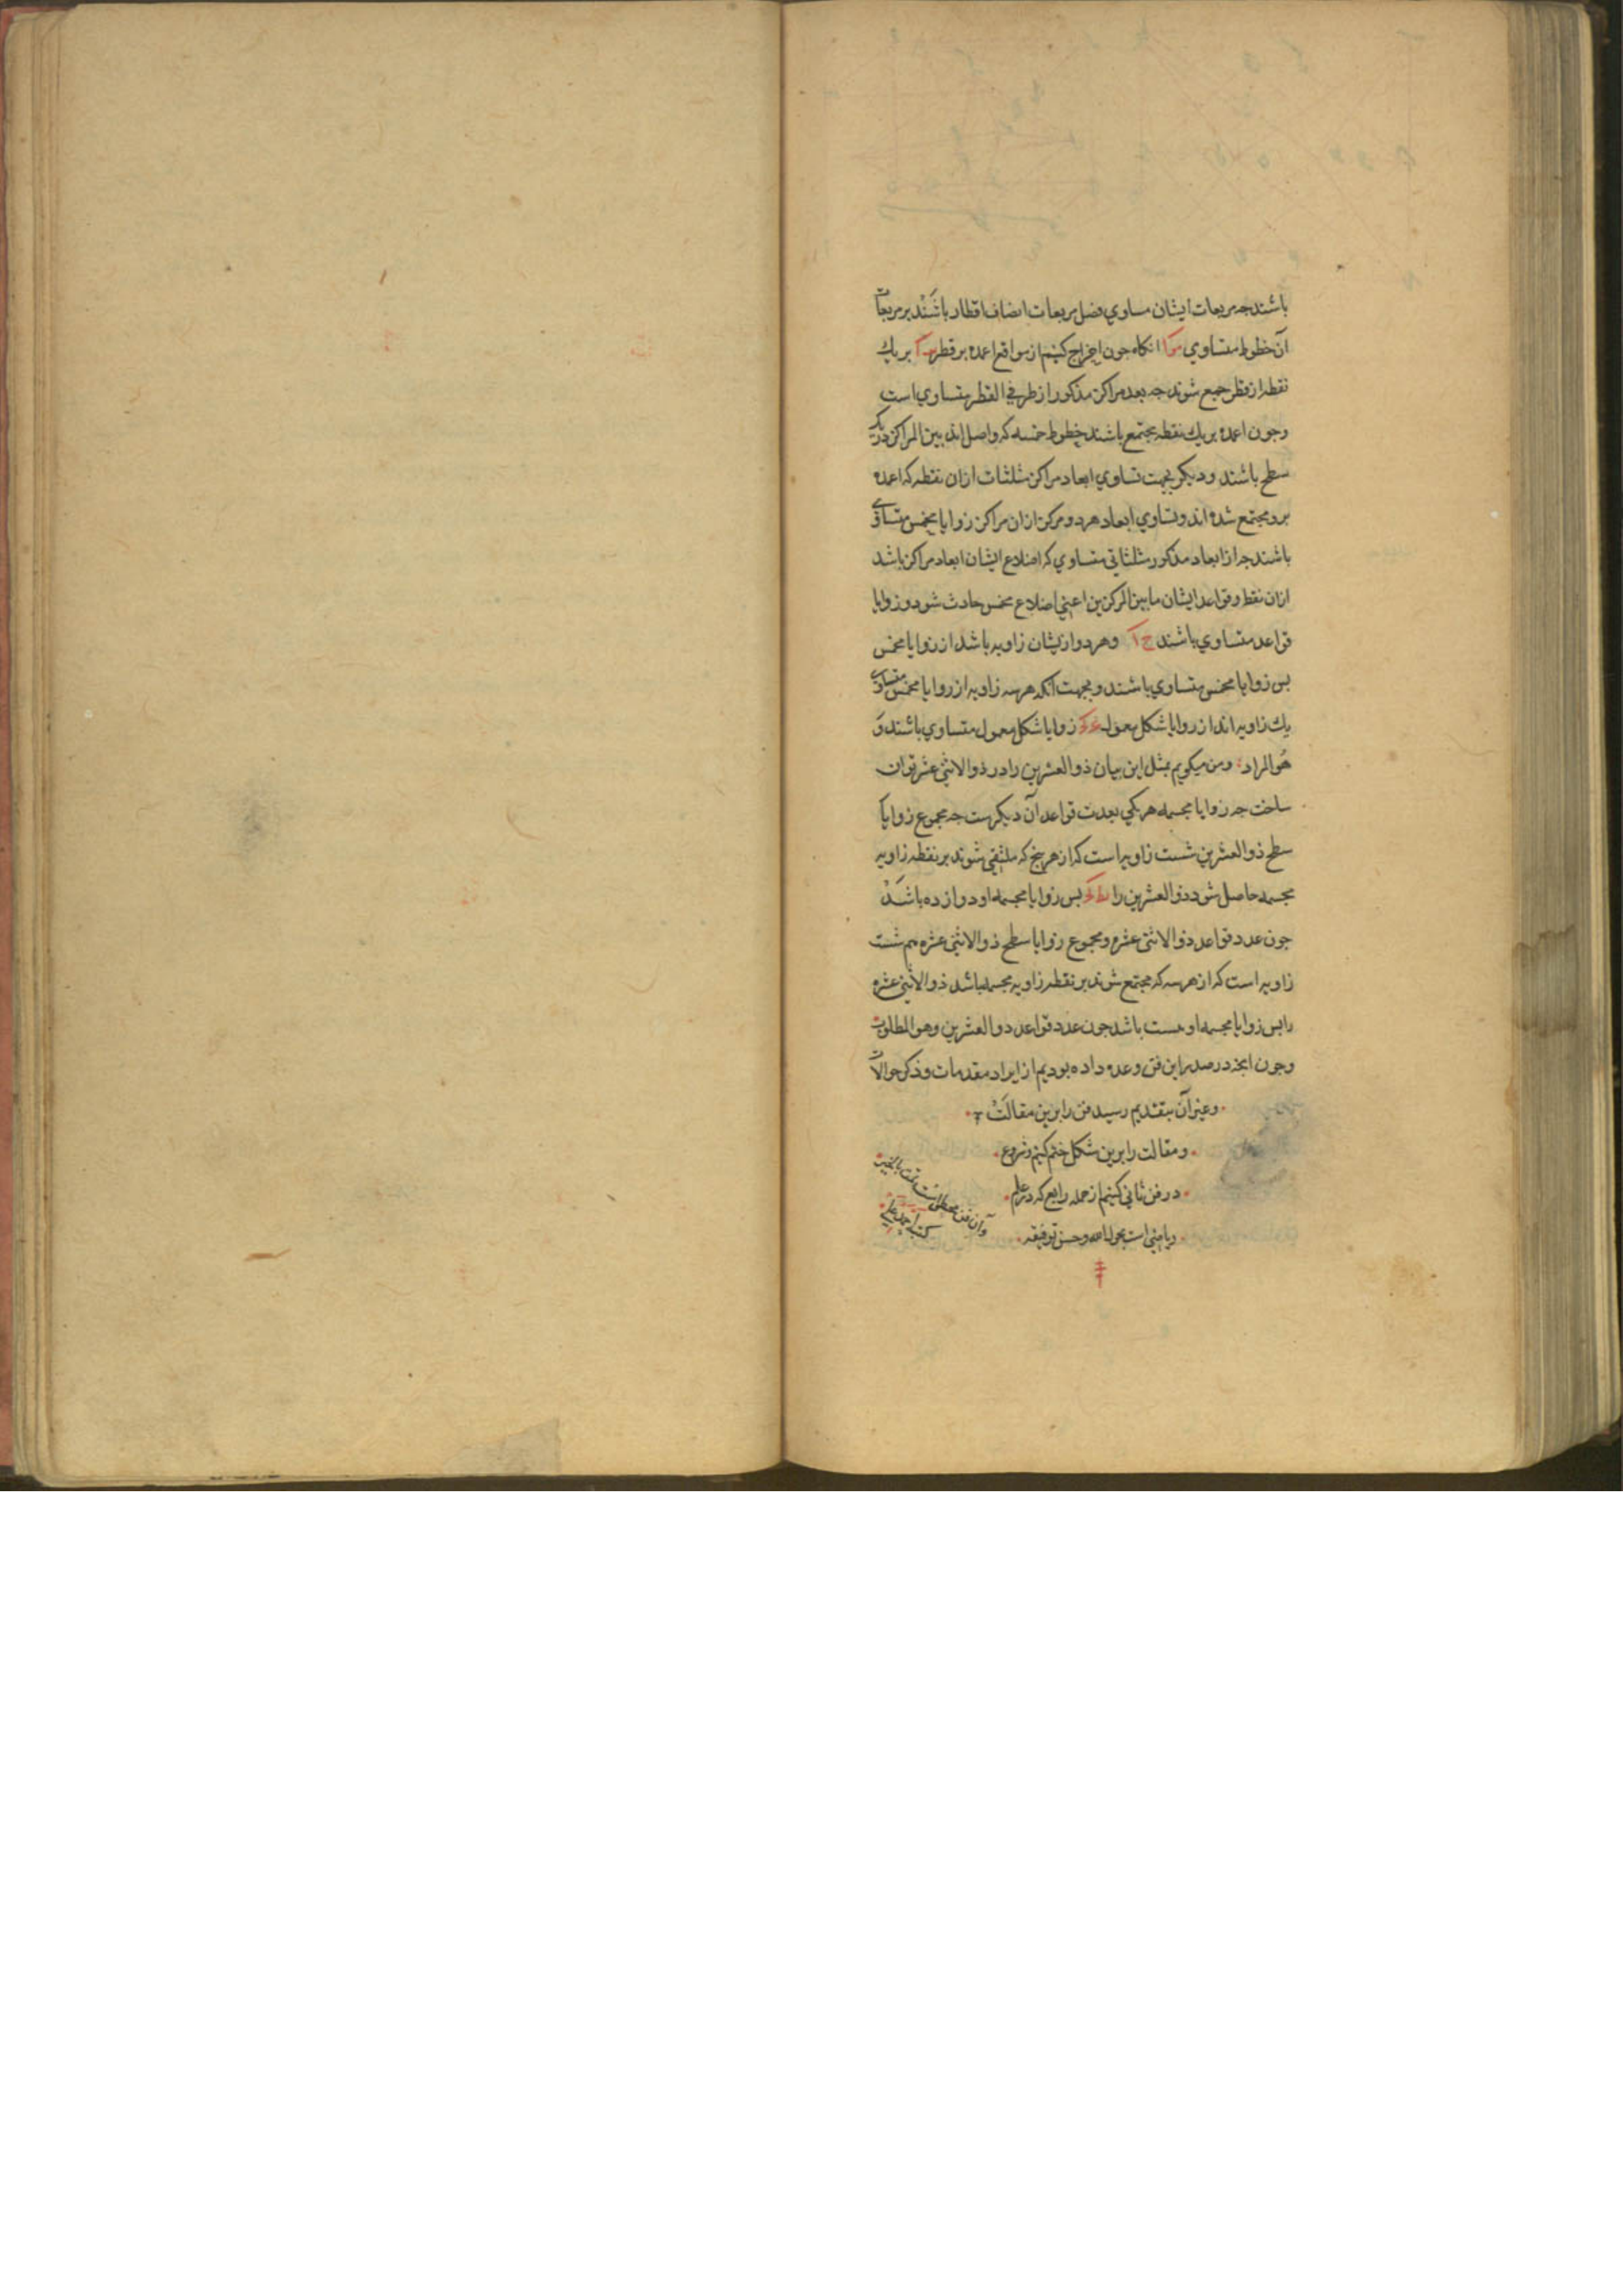 باشند جه مربعات ایشان مساوي فضل مربعات انصاف اقطار باشند بر مربعات
آن خطوط متساوي انکاه جون اخراج کنیم از مواقع اعمده بر قطر بریك
نقطه از قطر جمع شوند جه بعد مراکز مذکور از طرفي القطر متساوي است
وجون اعمده بریك نقطه مجتمع باشند خطوط خمسه که واصل اند بین المراکز در یک
سطح باشند ودیکر بجهت تساوي ابعاد مراکز مثلثات ازان نقطه که اعمده
برو مجتمع شده اند وتساوي ابعاد هر دو مرکز ازان مراکز زوایا مخمس متساوي
باشند جه از ابعاد مذکور مثلثاتي متساوي که اضلاع ایشان ابعاد مراکز باشد
ازان نقطه وقواعد ایشان ما بین المرکزین اعني اضلاع مخمس حادث شود وزوایا
قواعد متساوي باشند ح آ وهر دو از یشان زاویه باشد از زوایا مخمس
بس زوایا مخمس متساوي باشند وبجهت آنکه هر سه زاویه از زوایا مخمس متساوي
یك زاویه اند از زوایا شکل معمول زوایا شکل معمول متساوي باشند و
هو المراد ومن میکویم بمثل این بیان ذو العشرین را در ذو الاثني عشر توان
ساخت جه زوایا مجسمه هر یکي بعدت قواعد آن دیکرست جه مجموع زوایا
سطح ذو العشرین شست زاویه است که از هر پنج که ملتقي شوند بر نقطه زاویه
مجسمه حاصل شود ذو العشرین را بس زوایا مجسمه او دوازده باشد
جون عدد قواعد ذو الاثني عشره ومجموع زوایا سطح ذو الاثني عشره هم شست
زاویه است که از هر سه که مجتمع شوند بر نقطه زاویه مجسمه باشد ذو الاثني عشره
را بس زوایا مجسمه او بیست باشد جون عدد قواعد ذو العشرین وهو المطلوب
وجون انجه در صدر این فن وعده داده بودیم از ایراد مقدمات وذکر حوالات
وغیر آن بتقدیم رسید فن را برین مقالت
ومقالت را برین شکل ختم کنیم وشروع
در فن ثاني کنیم از جمله رابع که در علم
ریاضي است بحول الله وحسن توفیقه
وآن فن مجسطي است تمت بالخیر